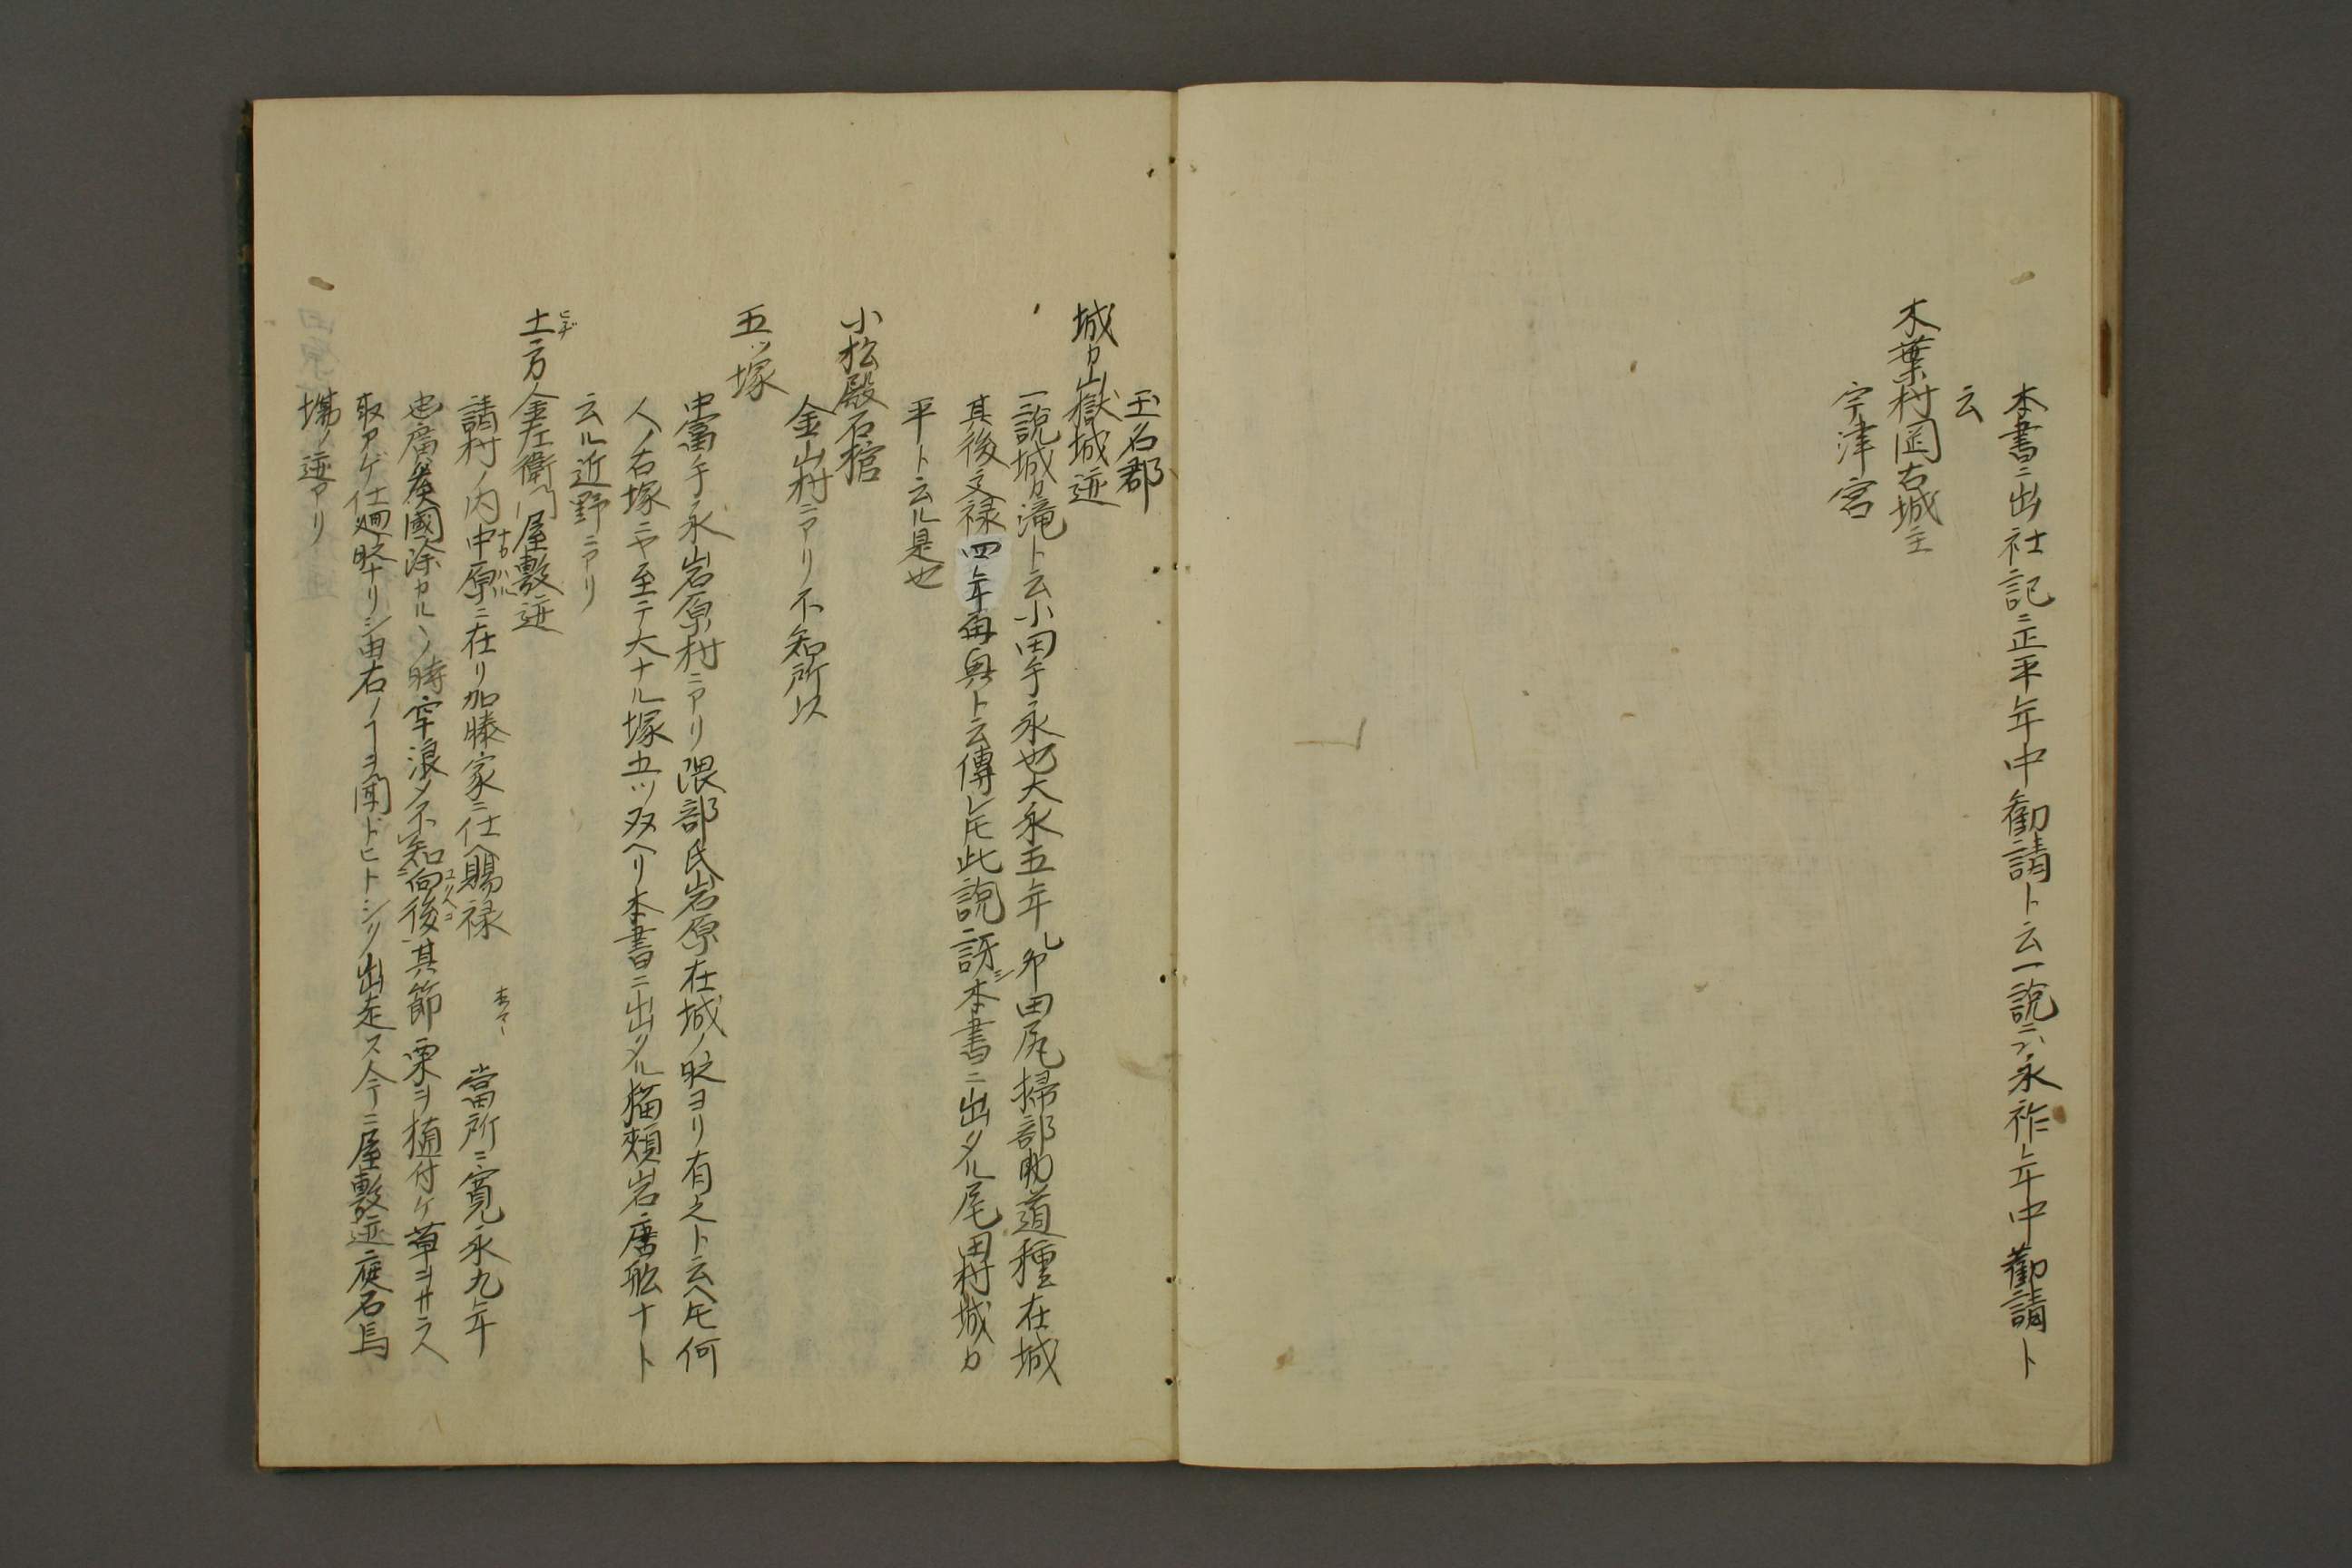 本書ニ出社記ニ正平年中勧請ト云一説ニハ永祚年中勸請ト
云
木葉村岡古城主
宇津宮
玉名郡
城カ嶽城迹
一説城カ滝ト云小田手永也大永五年乙卯田尻掃部助道種在城
其後文禄四年再興ト云傳レ𪜈此説訝シ本書ニ出タル尾田村城カ
平ト云ル是也
小松殿石棺
金山村ニアリ不知所以
五ツ塚
中冨手永岩原村ニアリ隈部氏岩原在城ノ時ヨリ有之ト云ヘ𪜈何
人ノ石塚ニヤ至テ大ナル塚五ツ双ヘリ本書ニ出タル猫頬岩唐舩ナト
云ル近野ニアリ
土方金左衛門屋敷迹
ヒヂ
請村ノ内中原ニ在リ加藤家ニ仕ヘ賜禄
ナカハル
本ノマヽ
當所ニ寛永九年
也廣矦國除カルヽノ時牢浪〆不知向後其節粟ヲ植付ケ草ヲサラヘ
ユクヘヲ
取アゲ仕廻時ナリシ由右ノヿヲ聞ドヒトシク出走ス今ニ屋敷迹庭石馬
塲ノ迹アリ